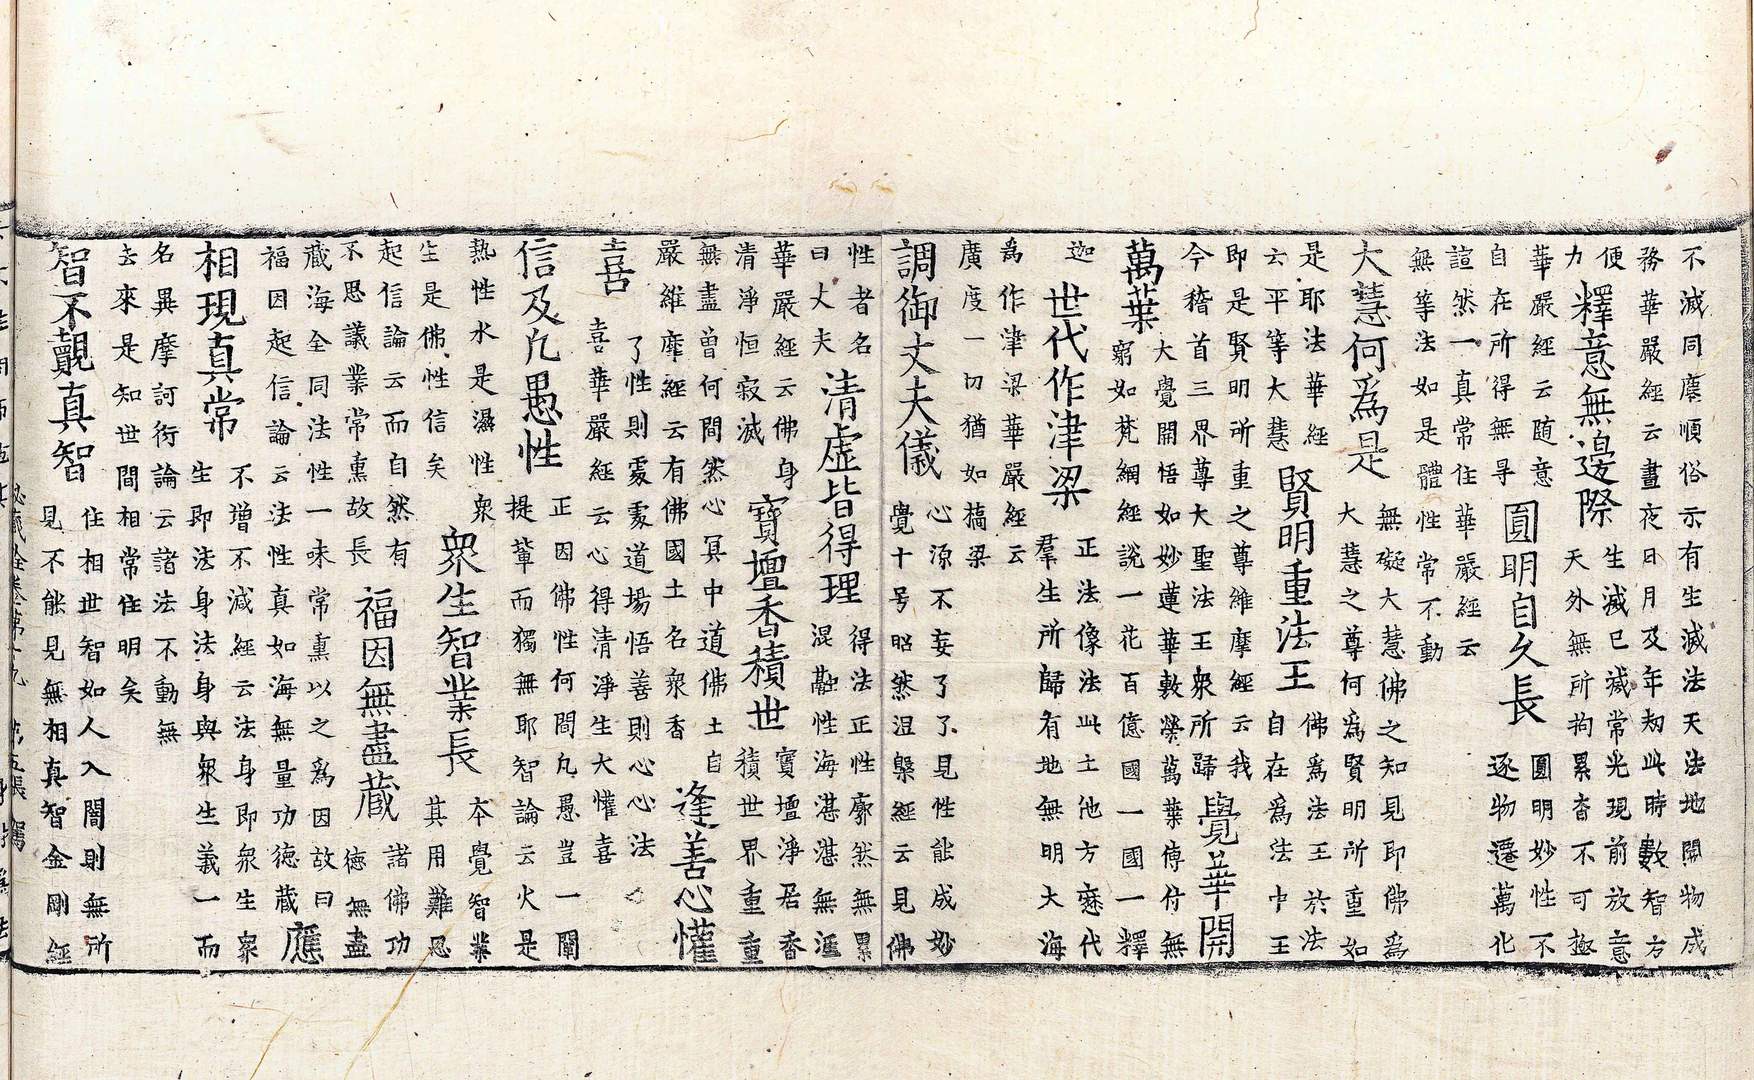 不滅同塵順俗示有生滅法天法地開物成
務華嚴經云晝夜日月及年劫此時數智方
便
力
釋意無邊際
生滅已滅常光現前放意
天外無所拘累杳不可極
華嚴經云随意
自在所得無㝵
圓明自久長
圓明妙性不
逐物遷萬化
諠然一真常住華嚴經云
無等法如是體性常不動
大慧何爲是
無礙大慧佛之知見即佛爲
大慧之尊何爲賢明所重如
是耶法華經
云平等大慧
賢明重法王
佛爲法王於法
自在爲法中王
即是賢明所重之尊維摩經云我
今稽首三界尊大聖法王衆所歸
覺華開
萬葉
大覺開悟如妙蓮華敷榮萬葉傳付無
窮如梵網經說一花百億國一國一釋
迦
世代作津梁
正法像法此土他方應代
羣生所歸有地無明大海
爲作津梁華嚴經云
廣度一切猶如橋梁
調御丈夫儀
心源不妄了了見性能成妙
覺十号昭然涅槃經云見佛
性者名
曰丈夫
清虛皆得理
得法正性廓然無累
混融性海湛湛無滙
華嚴經云佛身
清淨恒寂滅
寶壇香積世
寶壇淨居香
積世界重重
無盡曾何間然心冥中道佛土自
嚴維摩經云有佛國土名衆香
逢善心懽
喜
了性則處處道場悟善則心心法
喜華嚴經云心得清淨生大懽喜
信及凡愚性
正因佛性何間凡愚豈一闡
提輩而獨無耶智論云火是
熱性水是濕性衆
生是佛性信矣
衆生智業長
本覺智業
其用難思
起信論云而自然有
不思議業常熏故長
福因無盡藏
諸佛功
德無盡
藏海全同法性一味常熏以之爲因故曰
福因起信論云法性真如海無量功德藏
應
相現真常
不增不減經云法身即衆生衆
生即法身法身與衆生義一而
名異摩訶衍論云諸法不動無
去來是知世間相常住明矣
智不覩真智
住相世智如人入闇則無所
見不能見無相真智金剛經